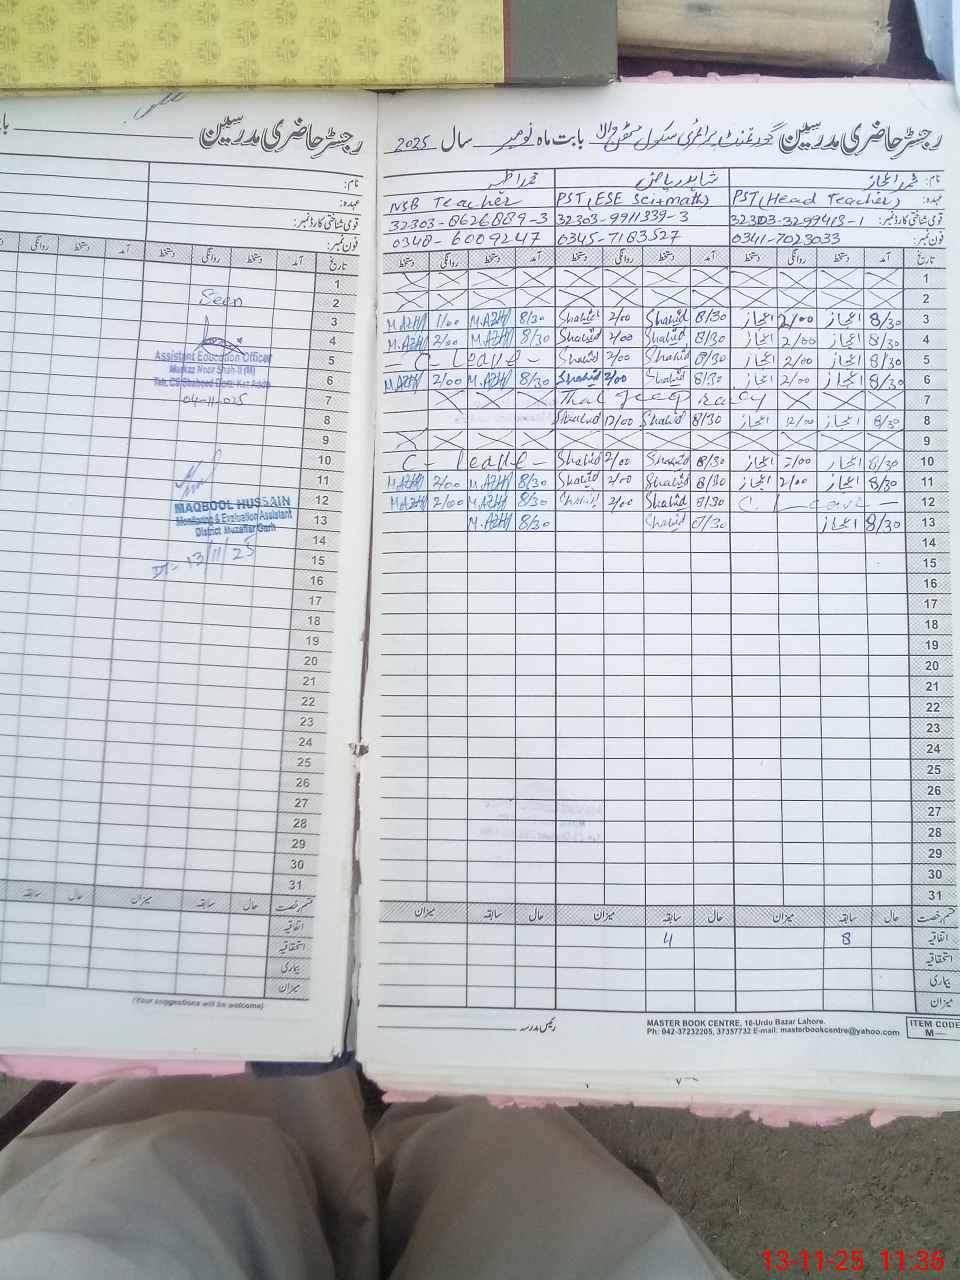 رجسٹر حاضری مدرسین گورنمنٹ پرائمری سکول بابت ماہ نومبر سال 2025
نام: محمد اعجاز شاہد ریاض محمد اظہر
عہدہ: PST (Head Teacher) PST (ESE Sci-math) NSB Teacher
قومی شناختی کارڈ نمبر: 32303-8626889-3 32303-9911339-3
فون نمبر: 0341-7023033 0345-7183527 0348-6009247
تاریخ آمد دستخط روانگی دستخط آمد دستخط روانگی دستخط آمد دستخط روانگی دستخط
1
2
M.AZHR 1/00 M.AZHR 8/30 Shahid 2/00 Shahid 8/30 اعجاز 2/00 اعجاز 8/30 3
M.AZHR 2/00 M.AZHR 8/30 Shahid 2/00 Shahid 8/30 اعجاز 2/00 اعجاز 8/30 4
C- Leave - Shahid 2/00 Shahid 8/30 اعجاز 2/00 اعجاز 8/30 5
M.AZHR 2/00 M.AZHR 8/30 Shahid 2/00 Shahid 8/30 اعجاز 2/00 اعجاز 8/30 6
Thal Jeep rally 7
Shahid 12/00 Shahid 8/30 اعجاز 12/00 اعجاز 8/30 8
9
C- Leave - Shahid 2/00 Shahid 8/30 اعجاز 2/00 اعجاز 8/30 10
M.AZHR 2/00 M.AZHR 8/30 Shahid 2/00 Shahid 8/30 اعجاز 2/00 اعجاز 8/30 11
M.AZHR 2/00 M.AZHR 8/30 Shahid 2/00 Shahid 8/30 C Leave - 12
M.AZHR 8/30 Shahid 8/30 اعجاز 8/30 13
14
15
16
17
18
19
20
21
22
23
24
25
26
27
28
29
30
31
قسم رخصت حال سابقہ میزان حال سابقہ میزان حال سابقہ میزان
اتفاقیہ 8 4
استحقاقیہ
بیماری
میزان
رئیس مدرسہ
MASTER BOOK CENTRE, 16-Urdu Bazar Lahore.
Ph: 042-37232205, 37357732 E-mail: masterbookcentre@yahoo.com
ITEM CODE
M—
رجسٹر حاضری مدرسین
نام:
عہدہ:
قومی شناختی کارڈ نمبر:
فون نمبر:
تاریخ آمد دستخط روانگی دستخط آمد دستخط روانگی
1
2
3
4
5
6
7
8
9
10
11
12
13
14
15
16
17
18
19
20
21
22
23
24
25
26
27
28
29
30
31
Seen
Assistant Education Officer
Markaz Noor Shah-II (M)
Teh, CS Shaheed Distt: Kot Addu
04-11-025
MAQBOOL HUSSAIN
Monitoring & Evaluation Assistant
District Muzaffar Garh
DT- 13/11/25
قسم رخصت حال سابقہ میزان حال سابقہ
اتفاقیہ
استحقاقیہ
بیماری
میزان
(Your suggestions will be welcome)
13-11-25 11:36